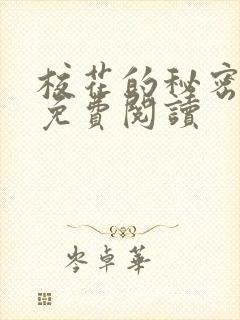 校花的秘密
免費閱讀
岑卓華